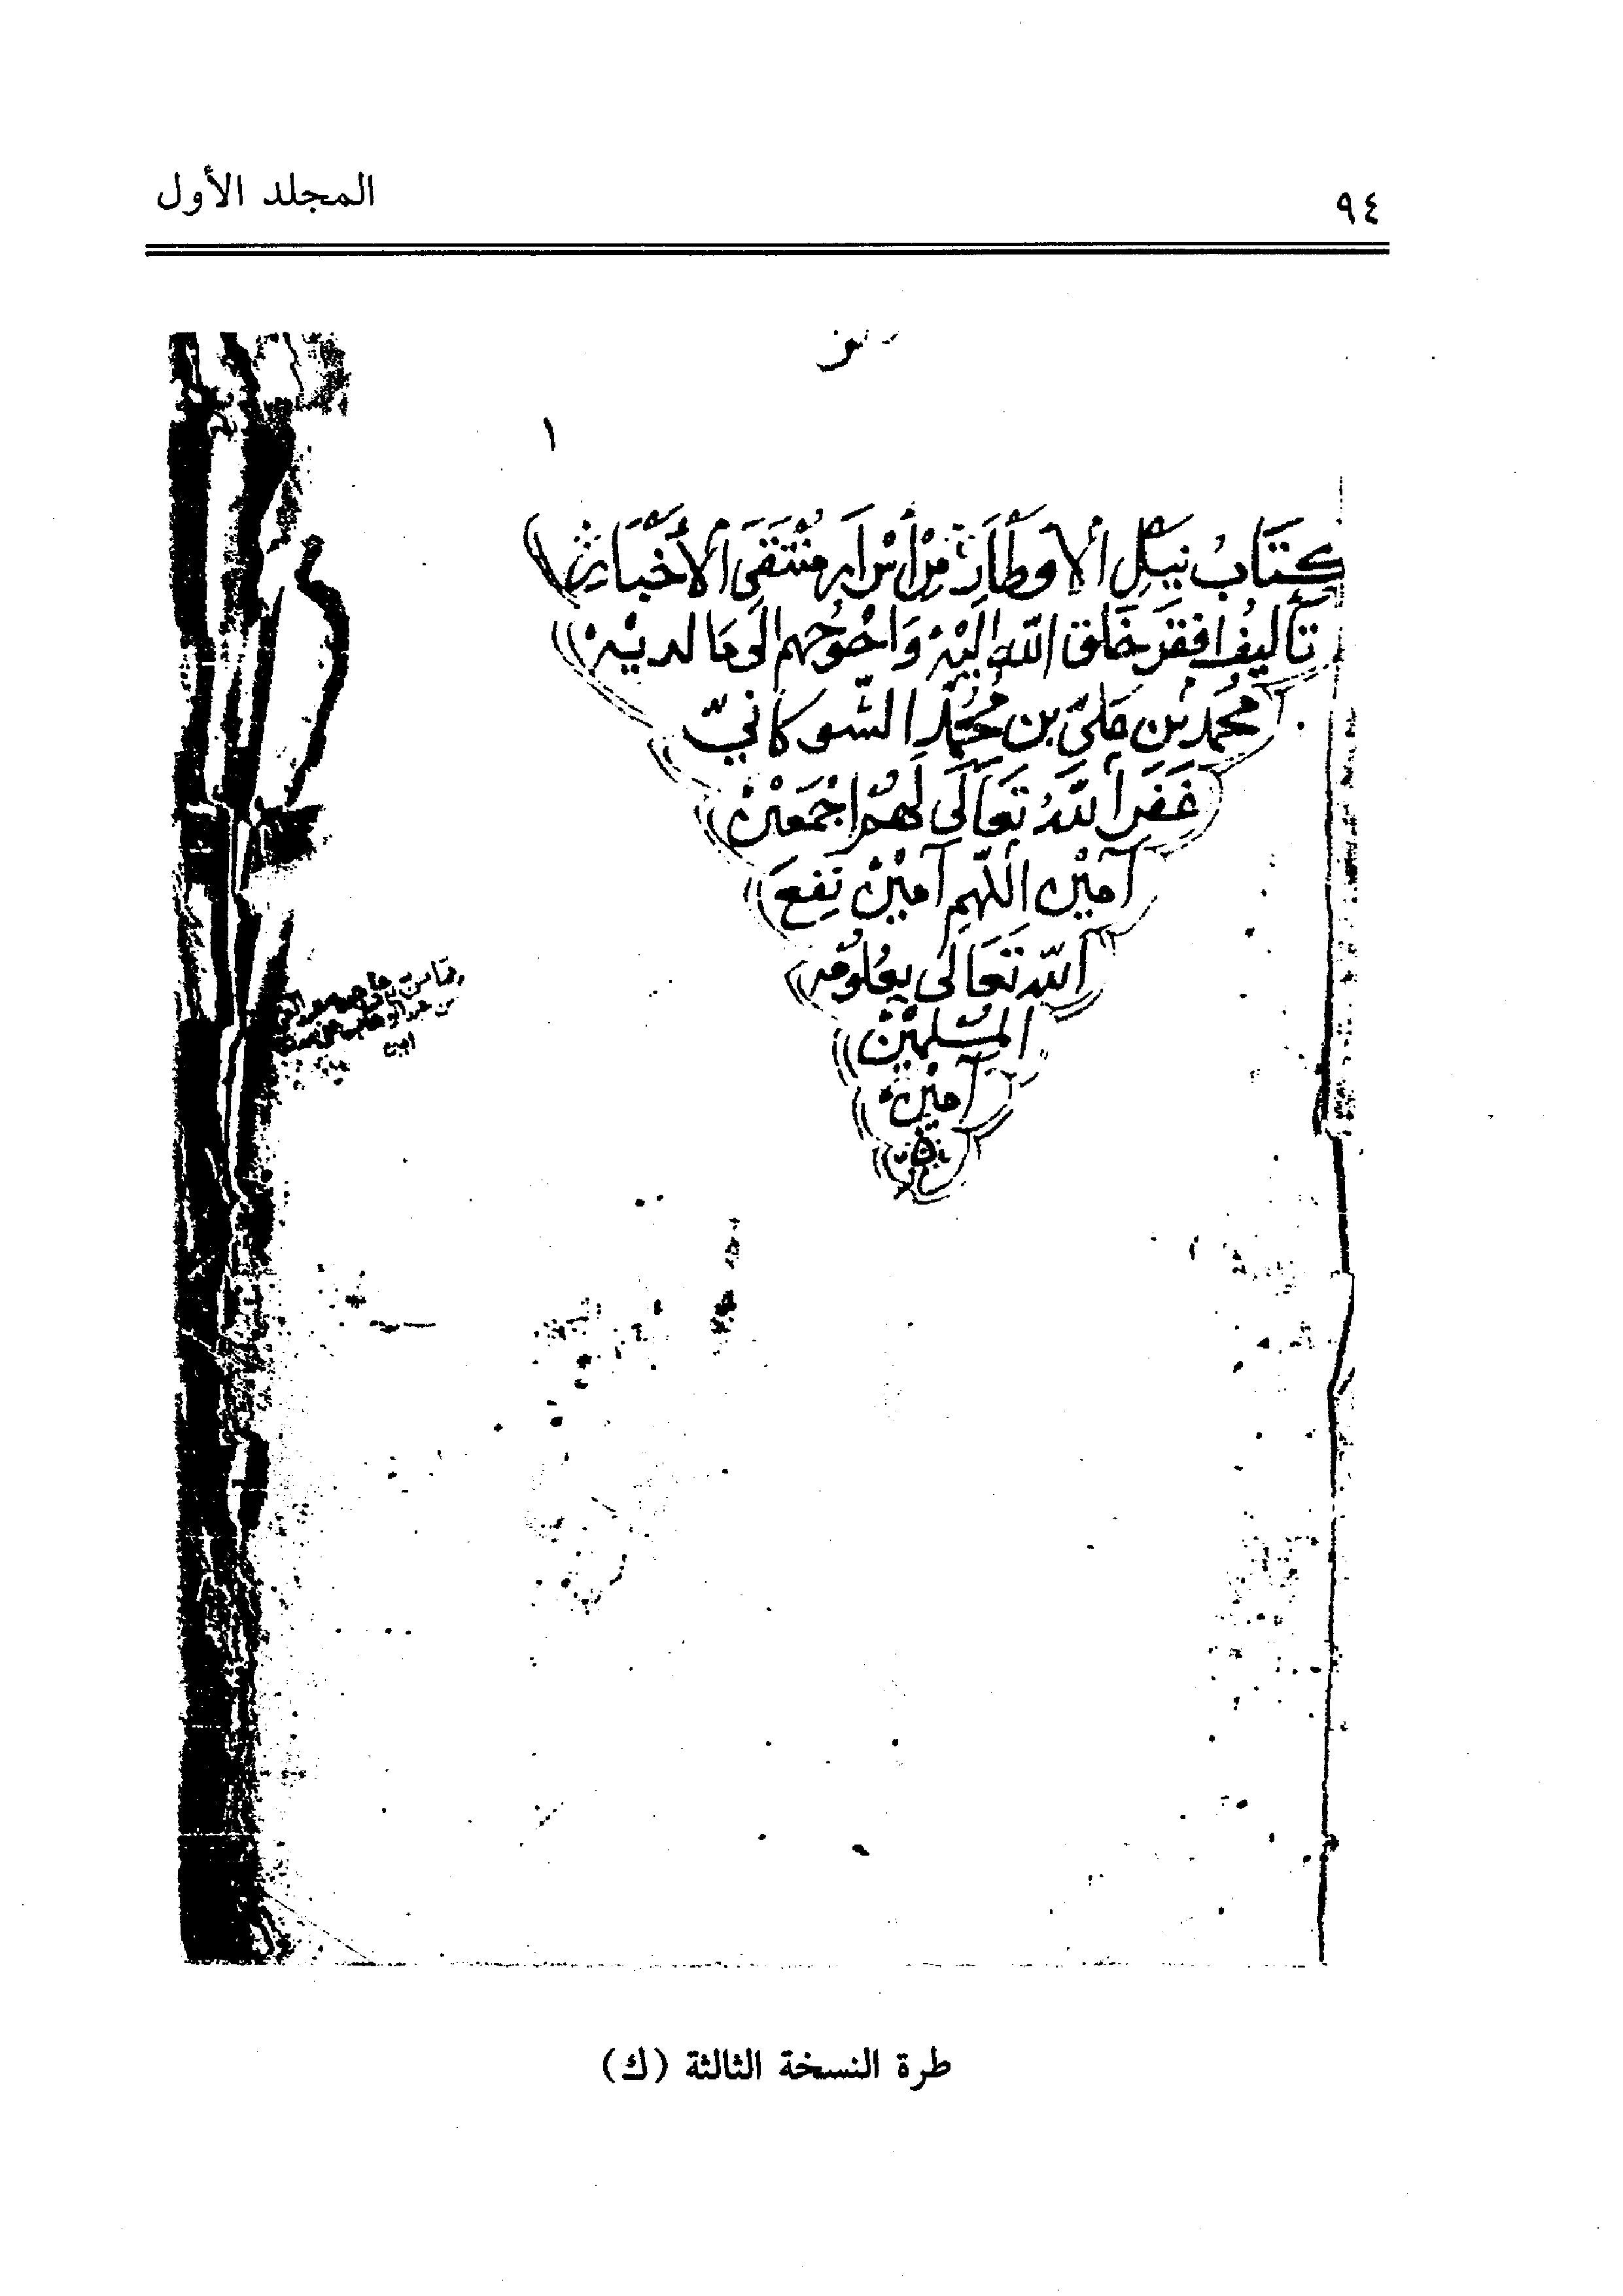 ٩٤ المجلد الأول
١
كِتَابُ نَيْلِ ٱلأوطَارِ مِنْ أسْرَارِ مُنْتَقَى ٱلأخْبَارِ
تَألِيفُ افقَرِ خَلق اللهِ إلَيْهِ وَاحْوَجهم الَى مَا لديْهِ
مُحَمّد بْن عَلىّ بن مُحَمّدِ الشّوكانيّ
غَفَرَ ٱللَّهُ تَعَالَى لَهُمْ اجْمَعَيْنَ
آمِيْن اللّهم آمِيْنْ نَفعَ
اللّه تَعَالَى بِعُلومِهِ
المُسْلِمِيْنَ
آمِيْن
طرة النسخة الثالثة (ك)